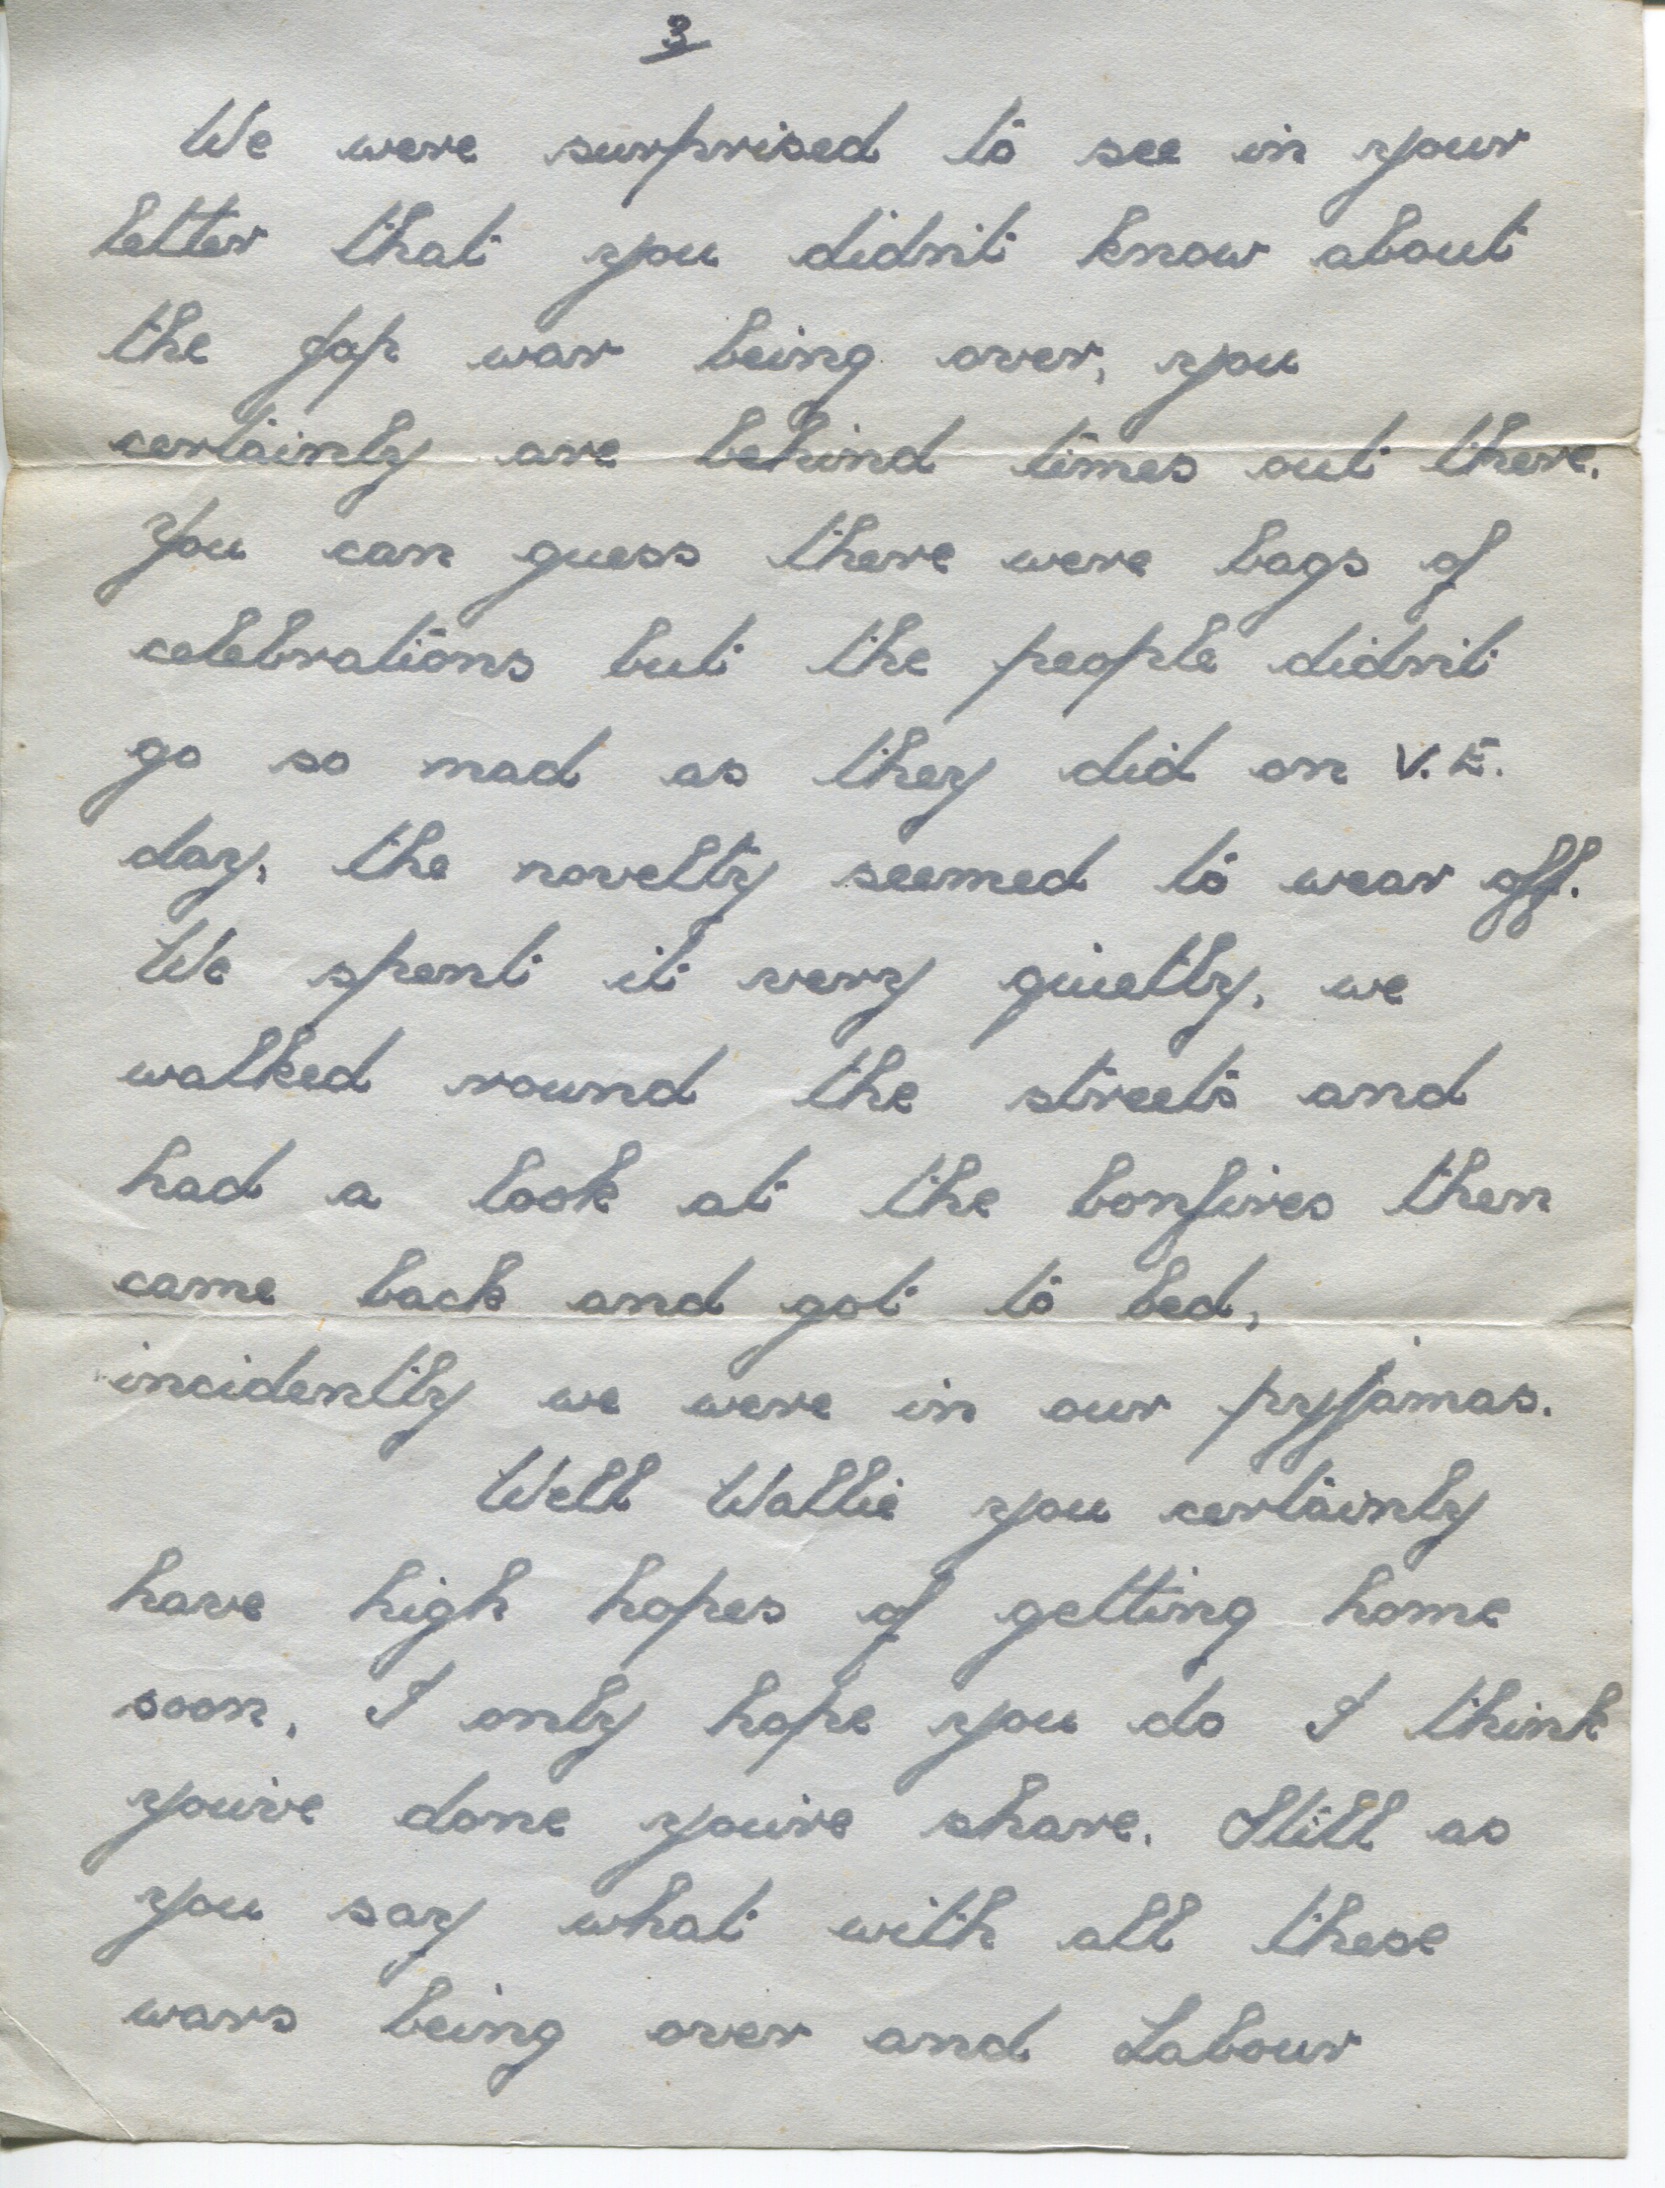 3
We were surprised to see in your
letter that you didn't know about
the Jap war being over, you
certainly are behind times out there.
You can guess there were bags of
celebrations but the people didn't
go so mad as they did on V.E.
day, the novelty seemed to wear off.
We spent it very quietly, we
walked round the streets and
had a look at the bonfires then
came back and got to bed,
incidently we were in our pyjamas.
Well Wallie you certainly
have high hopes of getting home
soon, I only hope you do I think
you've done you're share. Still as
you say what with all these
wars being over and Labour